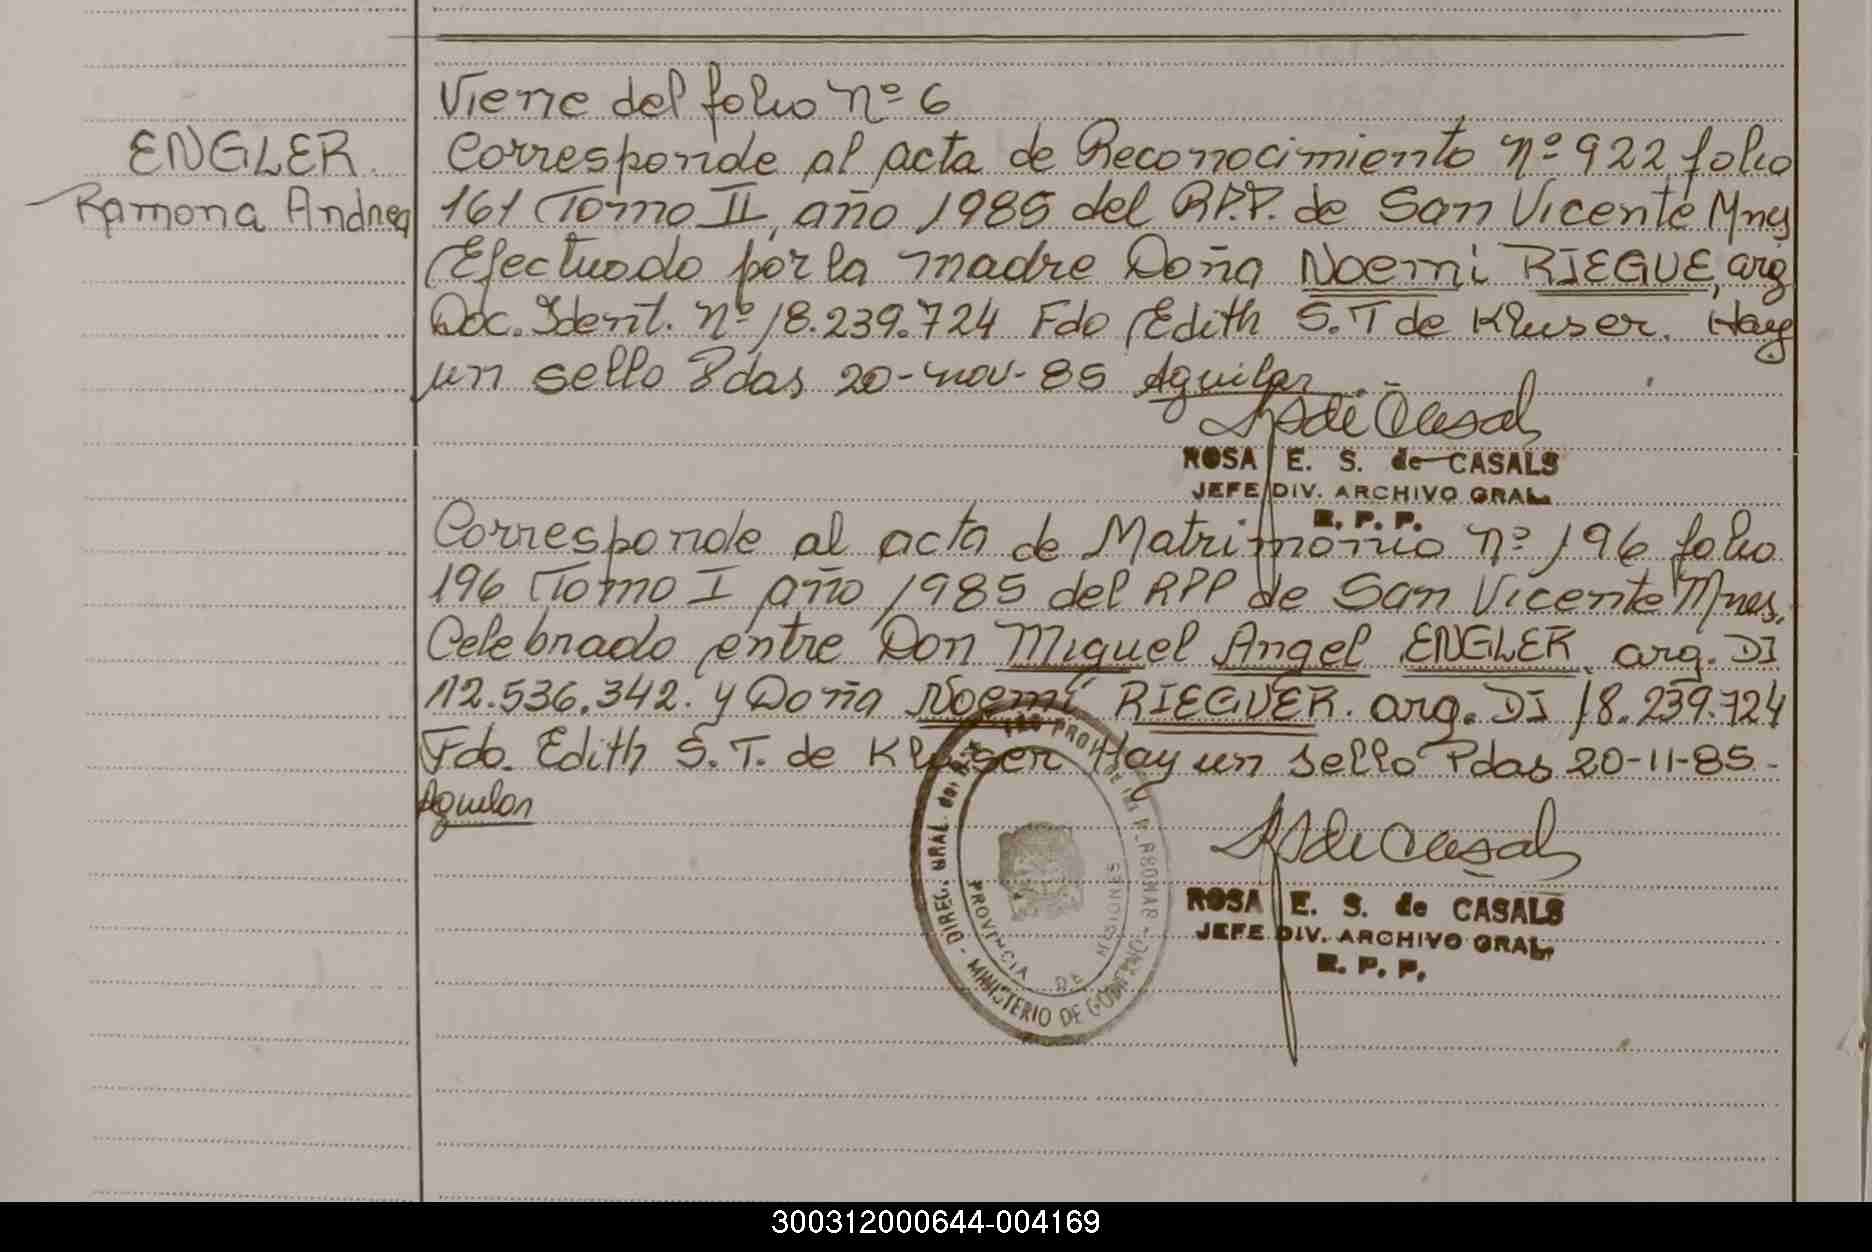 Viene del folio nº 6
ENGLER
Ramona Andrea
Corresponde al acta de Reconocimiento nº 922 folio
161 Tomo II, año 1985 del R.P.P. de San Vicente Mnes
Efectuado por la madre Doña Noemi RIEGUE, arg
Doc. Ident. nº 18.239.724 Fdo Edith S. T de Kluser. Hay
un sello Pdas 20-nov-85 Aguilar.-
ROSA E. S. de CASALS
JEFE DIV. ARCHIVO GRAL.
R. P. P.
Corresponde al acta de Matrimonio nº 196 folio
196 Tomo I año 1985 del RPP de San Vicente Mnes.
Celebrado entre Don Miguel Angel ENGLER. arg. DI
12.536.342. y Doña Noemí RIEGUER. arg. DI 18.239.724
Fdo. Edith S. T. de Kluser Hay un sello Pdas 20-11-85-
Aguilar
DIREC. GRAL. del REG. PROV. DE LAS PERSONAS - MINISTERIO DE GOBIERNO -
PROVINCIA DE MISIONES
ROSA E. S. de CASALS
JEFE DIV. ARCHIVO GRAL.
R. P. P.
300312000644-004169